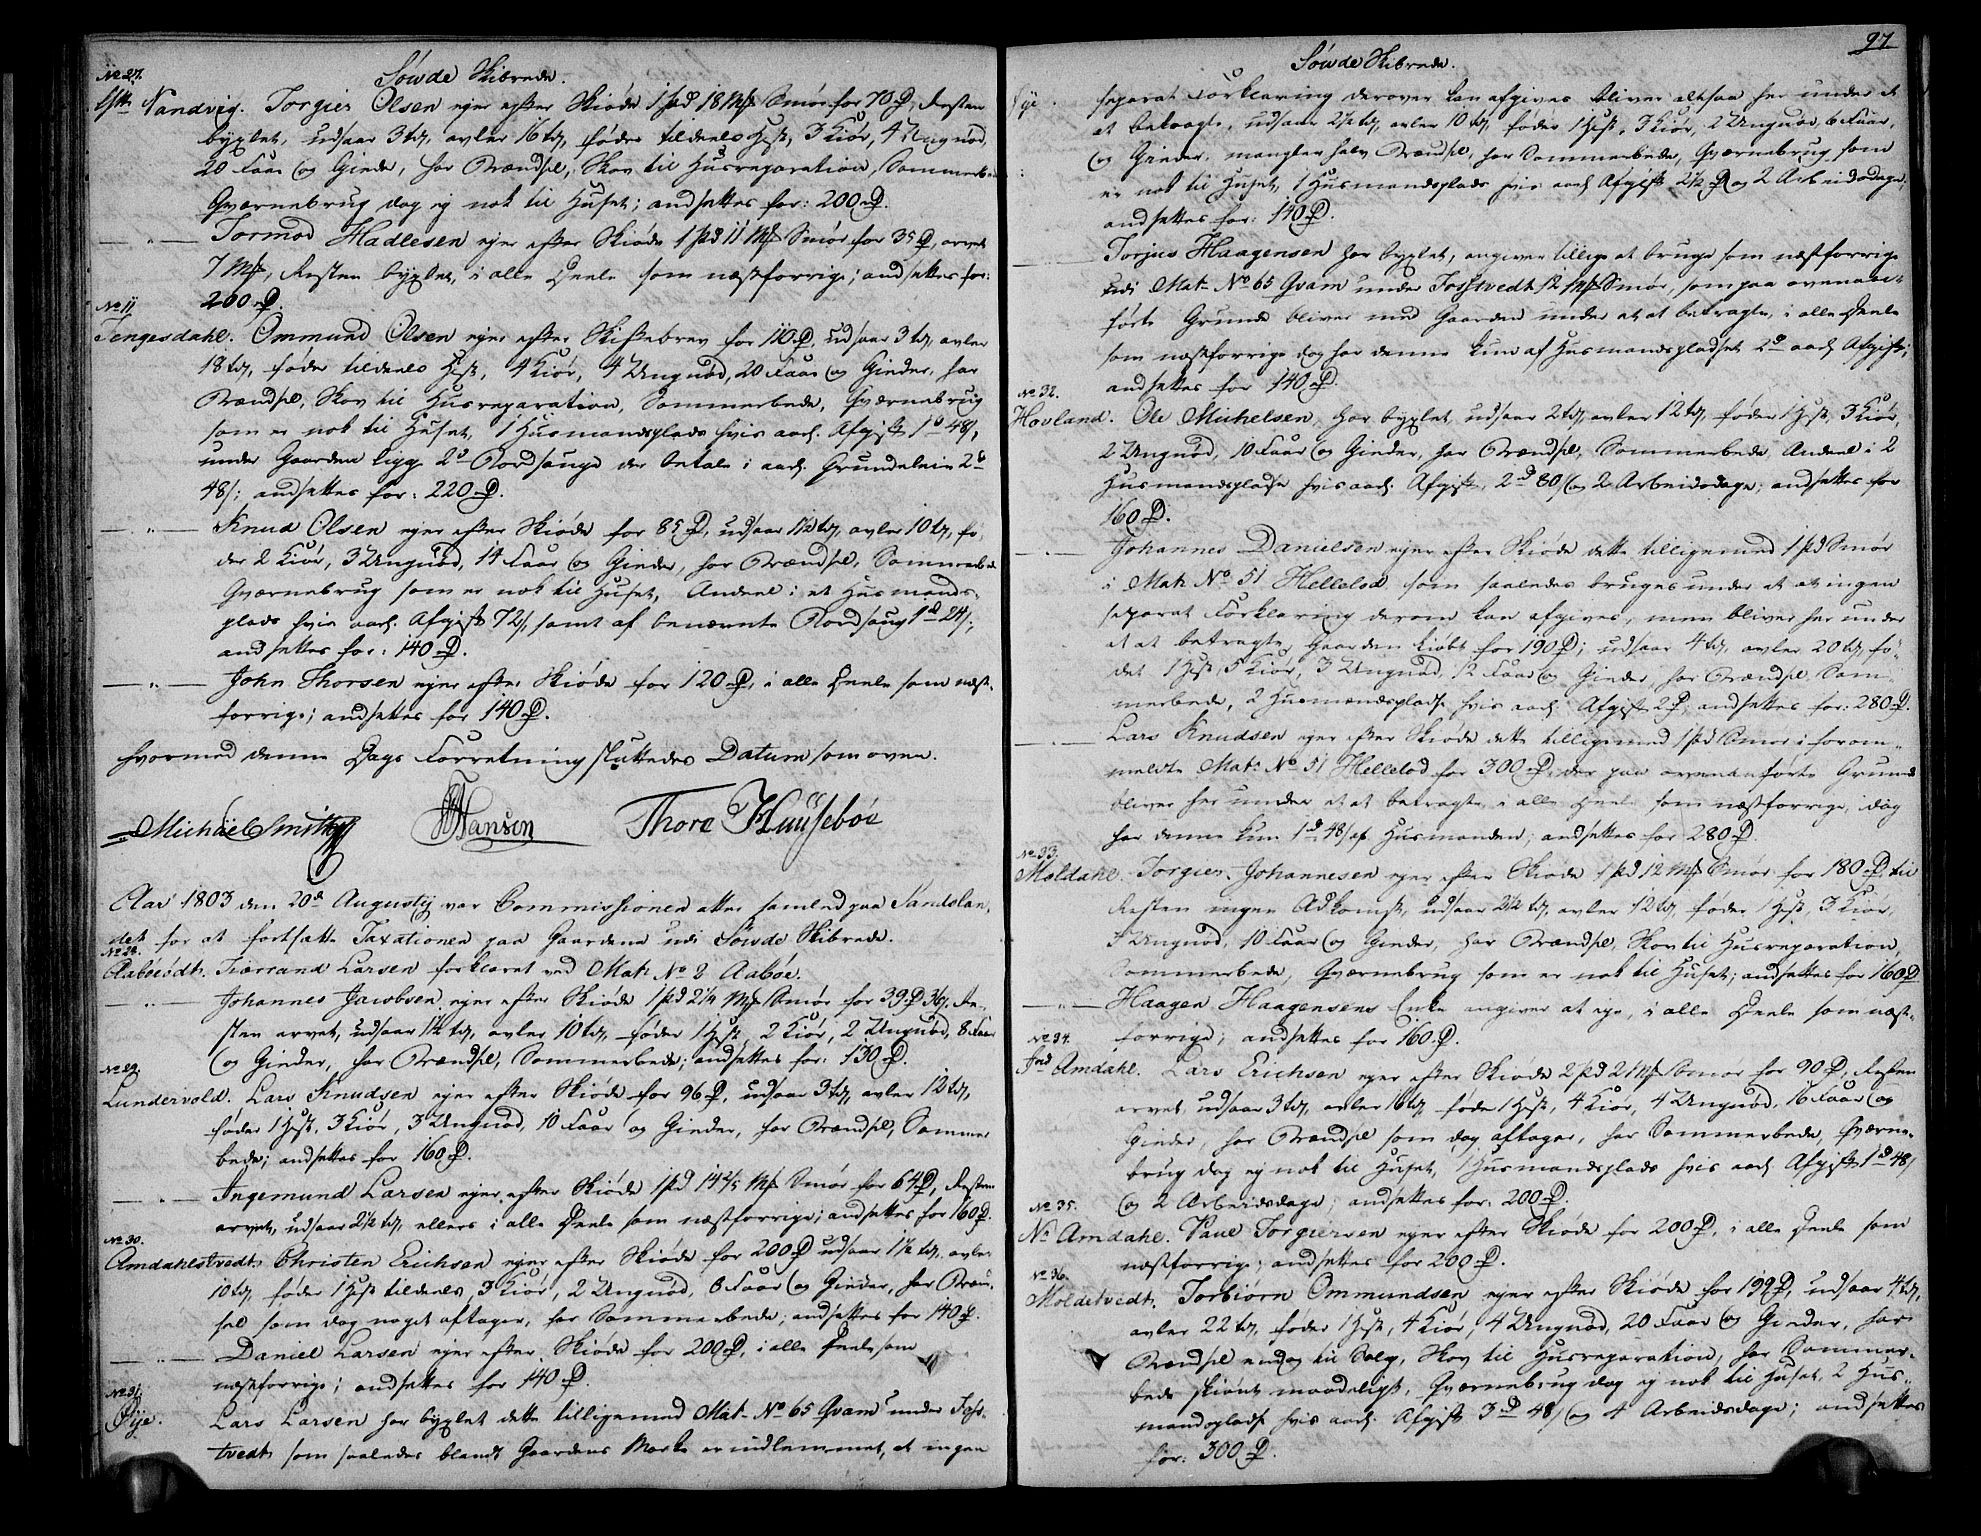 Søwde Skibrede.
No 27.
Nandvig. Torgier Olsen ejer efter Skiøde 1 pd 18 Mk Smør for 70 D, Resten
byxlet, udsaar 3 td, avler 16 td, føder tildeels Hest, 3 Kiør, 4 Ungnød,
20 Faar og Gieder, har Brændsel, Skov til Husreparation, Sommerb
Qværnebrug dog ej nok til Huset; andsettes for: 200 D.
— " — Tormod Hadlesen ejer efter Skiøde 1 pd 11 Mk Smør for 35 D, arvet
7 Mk, Resten byxlet, i alle Deele som næstforrige; andsettes for:
200 D.
No 11
Tengesdahl. Ommund Olsen ejer efter Skiftebrev for 110 D, udsaar 3 td, avler
18 td, føder tildeels Hest, 4 Kiør, 4 Ungnød, 20 Faar og Gieder, har
Brændsel, Skov til Husreparation, Sommerbede, Qværnebrug
som er nok til Huset, 1 Husmandsplads hvis aarl. Afgift 1 D 48 s,
under Gaarden ligg 2de Bordsauge der betale i aarl. Grundeleie 2 D
48 s; andsettes for: 220 D.
— " — Knud Olsen ejer efter Skiøde for 85 D, udsaar 1½ td, avler 10 td, fø-
der 2 Kiør, 3 Ungnød, 14 Faar og Gieder, har Brændsel, Sommerbede
Qværnebrug som er nok til Huset, Andeel i et Husmands-
plads hvis aarl. Afgift 72 s, samt af benævnte Bordsaug 1 D 24 s;
andsettes for: 140 D.
— " — John Thorsen ejer efter Skiøde for 120 D, i alle Deele som næst-
forrige; andsettes for 140 D.
hvormed denne Dags Forretning sluttedes Datum som oven.
Michael Smith Hansen Thore Huusebøe
Aar 1803 den 20de Augustij var Commissionen atter samled paa Sandslan,
det for at fortsatte Taxationen paa Gaardene udi Søwde Skibrede.
No 28.
Aabøeødt. Tiærrand Larsen forklaret ved Mat. No 2 Aabøe.
— " — Johannes Jacobsen ejer efter Skiøde 1 pd 2¼ Mk Smør for 39 D 36 s, Re-
sten arvet, udsaar 1½ td, avler 10 td, føder 1 Hest, 2 Kiør, 2 Ungnød, 8 Faar
og Gieder, har Brændsel, Sommerbede; andsettes for: 130 D.
No 29.
Lundervold. Lars Knudsen ejer efter Skiøde for 96 D, udsaar 3 td, avler 12 td,
føder 1 Hest, 3 Kiør, 3 Ungnød, 10 Faar og Gieder, har Brændsel, Sommer
bede; andsettes for 160 D.
— " — Ingemund Larsen ejer efter Skiøde 1 pd 14 2/5 Mk Smør for 64 D, Resten
arvet, udsaar 2½ td, ellers i alle Deele som næstforrige; andsettes for 160 D.
No 30.
Amdahlstvedt. Christen Erichsen ejer efter Skiøde for 200 D udsaar 1½ td, avler
10 td, føder 1 Hest tildeels, 3 Kiør, 2 Ungnød, 6 Faar og Gieder, har Bræn-
sel som dog noget aftager, har Sommerbede; andsettes for 140 D.
— " — Daniel Larsen ejer efter Skiøde for 200 D, i alle Deele som
næstforrige; andsettes for 140 D.
No 31.
Øije. Lars Larsen har byxlet dette tilligemed Mat. No 65 Qvam under Jos-
tvedt som saaledes blandt Gaardens Marke er indlemmet, at ingen
97
Søwde Skibrede.
Øije. separat Forklaring derover kan afgives bliver altsaa her under et
at betragte, udsaar 2½ td, avler 10 td, føder 1 Hest, 3 Kiør, 2 Ungnød, 6 Faar,
og Gieder, mangler halv Brændsel, har Sommerbede, Qværnebrug som
er nok til Huset, 1 Husmandsplads hvis aarl. Afgift 2½ D og 2 Arbeidsdage;
andsettes for: 140 D.
— " — Torjus Haagensen har byxlet, angiver tillige at bruge som næstforrige
udi Mat. No 65 Qvam under Jostvedt 12 Mk Smør, som paa ovenan-
førte Grunde bliver med Gaarden under et at betragte, i alle Deele
som næstforrige dog har denne kun af Husmandspladset 2 D aarl. Afgift;
andsettes for 140 D.
No 32.
Hovland. Ole Michelsen har byxlet, udsaar 2 td, avler 12 td, føder 1 Hest, 3 Kiør,
2 Ungnød, 10 Faar og Gieder, har Brændsel, Sommerbede, Andeel i 2
Husmandspladse hvis aarl. Afgift, 2 D 80 s og 2 Arbeidsdage; andsettes for
160 D.
— " — Johannes Danielsen ejer efter Skiøde dette tilligemed 1 pd Smør
i Mat. No 51 Hellelod som saaledes bruges under et at ingen
separat Forklaring derom kan afgives, men bliver her under
et at betragte, Gaarden kiøbt for 190 D; udsaar 4 td, avler 20 td, fø-
det 1 Hest, 5 Kiør, 3 Ungnød, 12 Faar og Gieder, har Brændsel, Som-
merbede, 2 Husmandspladse hvis aarl. Afgift 2 D, andsettes for: 280 D.
— " — Lars Knudsen ejer efter Skiøde dette tilligemed 1 pd Smør i forom-
meldte Mat. No 51 Hellelod for 300 D, der paa ovenanførte Grund
bliver her under et at betragte, i alle Deele som næstforrige, dog
har denne kun 1 D 48 s af Husmanden; andsettes for 280 D.
No 33.
Moldahl. Torgier Johannesen ejer efter Skiøde 1 pd 12 Mk Smør for 180 D, til
Resten ingen Adkomst, udsaar 2½ td, avler 12 td, føder 1 Hest, 3 Kiør,
3 Ungnød, 10 Faar og Gieder, har Brændsel, Skov til Husreparation,
Sommerbede, Qværnebrug som er nok til Huset; andsettes for 160 D
— " — Haagen Haagensens Enke angiver at eje, i alle Deele som næst-
forrige; andsettes for 160 D.
No 34.
Ind Amdahl. Lars Erichsen ejer efter Skiøde 2 pd 21 Mk Smør for 90 D, Resten
arvet, udsaar 3 td, avler 16 td, føde 1 Hest, 4 Kiør, 4 Ungnød, 16 Faar og
Gieder, har Brændsel som dog aftager, har Sommerbede, Qværne-
brug dog ej nok til Huset, 1 Husmandsplads hvis aarl. Afgift 1 D 48 s
og 2 Arbeidsdage; andsettes for: 200 D.
No 35.
N. Amdahl. Paul Torgiersen ejer efter Skiøde for 200 D, i alle Deele som
næstforrige; andsettes for 200 D.
No 36.
Moldetvedt. Torbiørn Ommundsen ejer efter Skiøde for 199 D, udsaar 4 td,
avler 22 td, føder 1 Hest, 4 Kiør, 4 Ungnød, 20 Faar og Gieder, har
Brændsel endog til Salg, Skov til Husreparation, har Sommer-
bede skiønt maadeligt, Qværnebrug dog ej nok til Huset, 2 Hus-
mandspladse hvis aarl. Afgift 3 D 48 s og 4 Arbeidsdage; andsettes
for: 300 D.